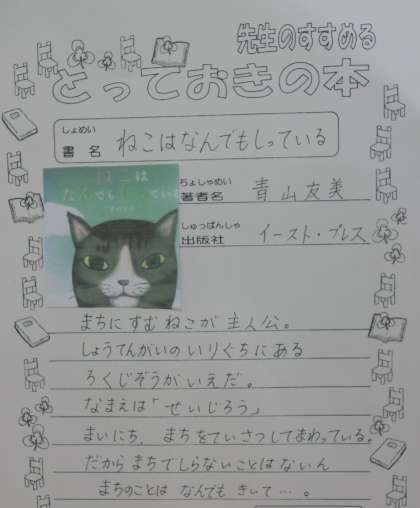 先生のすすめる
とっておきの本
しょめい
書名 ねこはなんでもしっている
ねこは
なんでもしっている
ちょしゃめい
著者名 青山友美
しゅっぱんしゃ
出版社 イースト・プレス
まちにすむねこが主人公。
しょうてんがいのいりぐちにある
ろくじぞうがいえだ。
なまえは「せいじろう」
まいにち、まちをていさつしてまわっている。
だからまちでしらないことはないん
まちのことはなんでもきいて…。